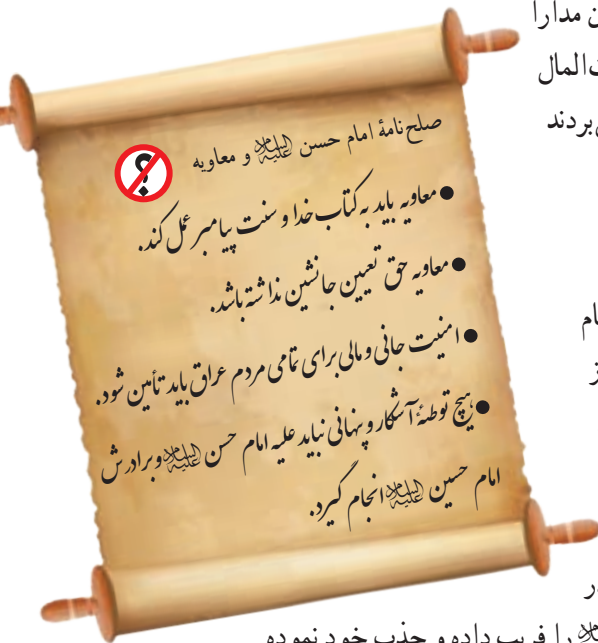 ن مدارا
ت‌المال
ی‌بردند
صلح‌نامهٔ امام حسن علیه‌السلام و معاویه
؟
● معاویه باید به کتاب خدا و سنت پیامبر عمل کند.
● معاویه حق تعیین جانشین نداشته باشد.
● امنیت جانی و مالی برای تمامی مردم عراق باید تأمین شود.
● هیچ توطئهٔ آشکار و پنهانی نباید علیه امام حسن علیه‌السلام و برادرش
امام حسین علیه‌السلام انجام گیرد.
ام
ز
ر
را فریب داده و جذب خود نموده